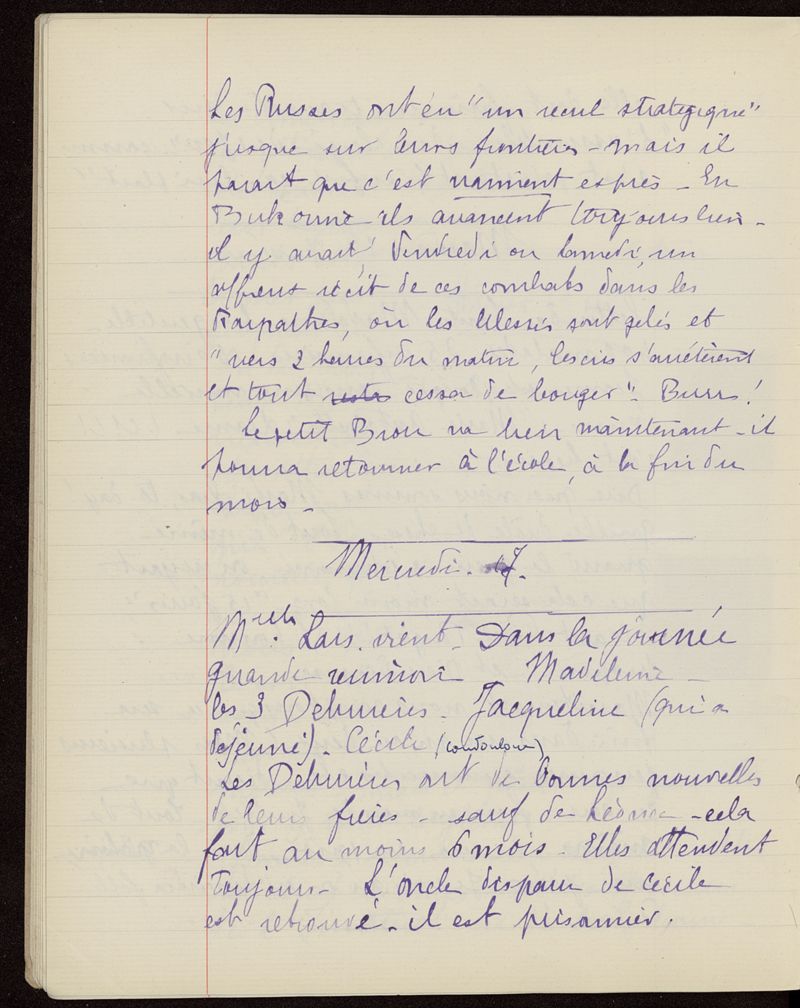 Les Russes ont eu "un recul stratégique"
jusque sur leurs frontières - mais il
parait que c'est vraiment exprès - En
Bukovine ils avancent toujours bien -
il y avait, Vendredi ou Samedi, un
affreux récit de ces combats dans les
Karpathes, où les blessés sont gelés et
"vers 2 heures du matin, les cris s'arrêtèrent
et tout resta cessa de bouger". Burrr!
Le petit Brou va bien maintenant - il
pourra retourner à l'école, à la fin du
mois -
Mercredi. 17.
Melle. Lars. vient - Dans la journée
grande réunion Madeleine -
les 3 Delumeries - Jacqueline (qui a
déjeuné). Cécile
Les Delumeries ont de bonnes nouvelles
de leurs frères - sauf de Léonce - cela
fait au moins 6 mois - Elles attendent
toujours - L'oncle disparu de Cécile
est retrouvé - il est prisonnier.